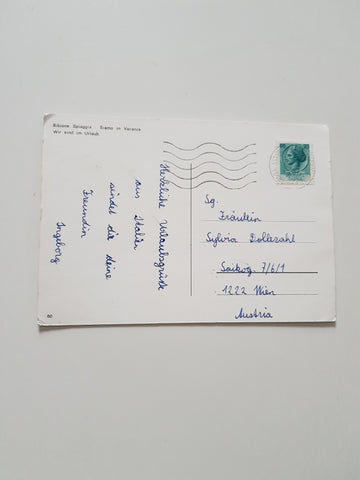 Bibione Spiaggia Siamo in Vacanza
Wir sind im Urlaub
Herzliche Urlaubsgrüße
aus Italien
sendet dir deine
Freundin
Ingeborg
Sg.
Fräulein
Sylvia Dollezahl
7/6/1
1222 Wien
Austria
60